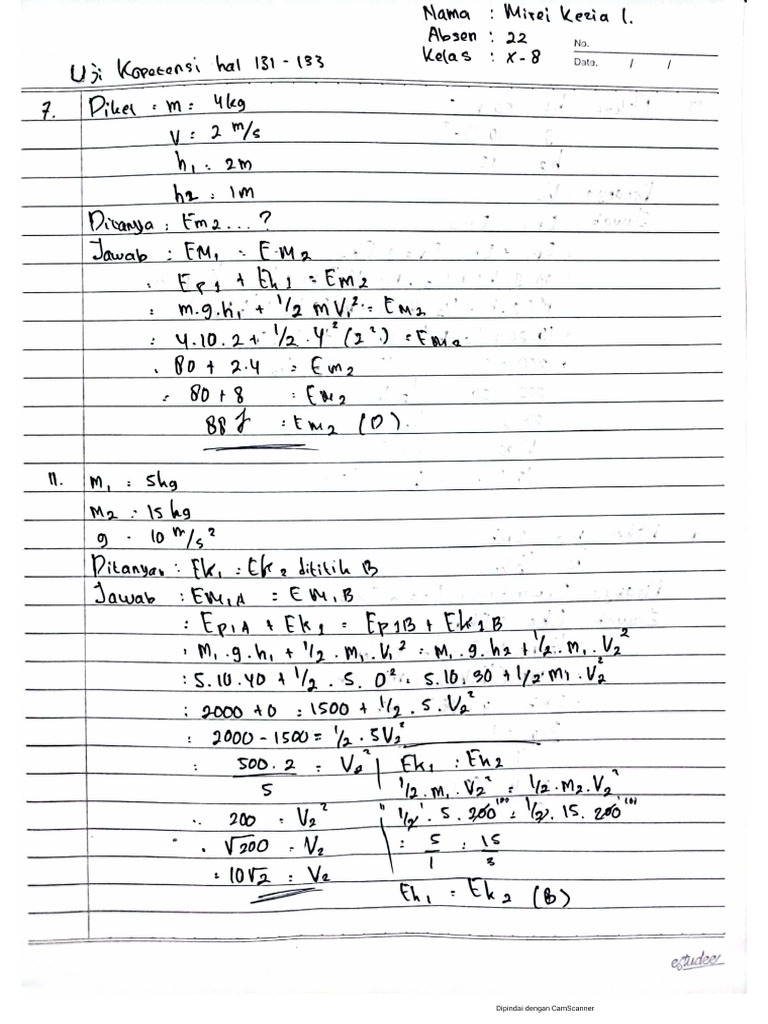 Nama : Mirei Kezia I.
Absen : 22
Kelas : X-8
No.
Date. / /
Uji Kopetensi hal 131 - 133
7. Diket : m : 4kg
V : 2 m/s
h₁ : 2m
h2 : 1m
Ditanya : Em2 ... ?
Jawab : EM₁ = EM₂
: Ep1 + Ek1 = Em2
: m.g.h₁ + 1/2 mV₁² = EM2
: 4.10.2 + 1/2 . 4² (2²) = Em2
: 80 + 2.4 = Em2
: 80 + 8 = Em2
88 J = Em2 (D).
11. m₁ : 5kg
M2 : 15 kg
g : 10 m/s²
Ditanya : Ek₁ : Ek2 dititik B
Jawab : EM₁A = EM₁B
: Ep₁A + Ek1 = Ep1B + Ek1B
: M₁ . g . h₁ + 1/2 . m₁ . V₁² = M₁ . g . h2 + 1/2 . m₁ . V2²
: 5.10.40 + 1/2 . 5 . 0² = 5.10.30 + 1/2 m₁ . V2²
: 2000 + 0 = 1500 + 1/2 . 5 . V2²
: 2000 - 1500 = 1/2 . 5V2²
: 500 . 2 / 5 = V2²
: 200 = V2²
: √200 = V2
: 10√2 = V2
Ek₁ : Ek2
1/2 . m₁ . V2² : 1/2 . M2 . V2²
1/2 . 5 . 200 ¹⁰⁰ : 1/2 . 15 . 200 ¹⁰⁰
: 5/1 : 15/3
Ek₁ : Ek2 (B)
estudee
Dipindai dengan CamScanner